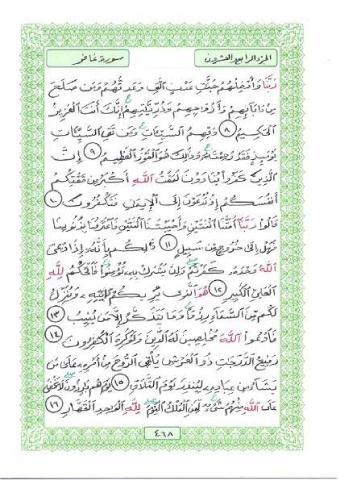 الجزء الرابع والعشرون سورة غافر
رَبَّنَا وَأَدْخِلْهُمْ جَنَّٰتِ عَدْنٍ ٱلَّتِى وَعَدتَّهُمْ وَمَن صَلَحَ
مِنْ ءَابَآئِهِمْ وَأَزْوَٰجِهِمْ وَذُرِّيَّٰتِهِمْ إِنَّكَ أَنتَ ٱلْعَزِيزُ
ٱلْحَكِيمُ ٨ وَقِهِمُ ٱلسَّيِّـَٔاتِ وَمَن تَقِ ٱلسَّيِّـَٔاتِ
يَوْمَئِذٍ فَقَدْ رَحِمْتَهُۥ وَذَٰلِكَ هُوَ ٱلْفَوْزُ ٱلْعَظِيمُ ٩ إِنَّ
ٱلَّذِينَ كَفَرُوا۟ يُنَادَوْنَ لَمَقْتُ ٱللَّهِ أَكْبَرُ مِن مَّقْتِكُمْ
أَنفُسَكُمْ إِذْ تُدْعَوْنَ إِلَى ٱلْإِيمَٰنِ فَتَكْفُرُونَ ١٠
قَالُوا۟ رَبَّنَآ أَمَتَّنَا ٱثْنَتَيْنِ وَأَحْيَيْتَنَا ٱثْنَتَيْنِ فَٱعْتَرَفْنَا بِذُنُوبِنَا
فَهَلْ إِلَىٰ خُرُوجٍ مِّن سَبِيلٍ ١١ ذَٰلِكُم بِأَنَّهُۥٓ إِذَا دُعِىَ
ٱللَّهُ وَحْدَهُۥ كَفَرْتُمْ وَإِن يُشْرَكْ بِهِۦ تُؤْمِنُوا۟ فَٱلْحُكْمُ لِلَّهِ
ٱلْعَلِىِّ ٱلْكَبِيرِ ١٢ هُوَ ٱلَّذِى يُرِيكُمْ ءَايَٰتِهِۦ وَيُنَزِّلُ
لَكُم مِّنَ ٱلسَّمَآءِ رِزْقًا وَمَا يَتَذَكَّرُ إِلَّا مَن يُنِيبُ ١٣
فَٱدْعُوا۟ ٱللَّهَ مُخْلِصِينَ لَهُ ٱلدِّينَ وَلَوْ كَرِهَ ٱلْكَٰفِرُونَ ١٤
رَفِيعُ ٱلدَّرَجَٰتِ ذُو ٱلْعَرْشِ يُلْقِى ٱلرُّوحَ مِنْ أَمْرِهِۦ عَلَىٰ مَن
يَشَآءُ مِنْ عِبَادِهِۦ لِيُنذِرَ يَوْمَ ٱلتَّلَاقِ ١٥ يَوْمَ هُم بَٰرِزُونَ لَا يَخْفَىٰ
عَلَى ٱللَّهِ مِنْهُمْ شَىْءٌ لِّمَنِ ٱلْمُلْكُ ٱلْيَوْمَ لِلَّهِ ٱلْوَٰحِدِ ٱلْقَهَّارِ ١٦
٤٦٨